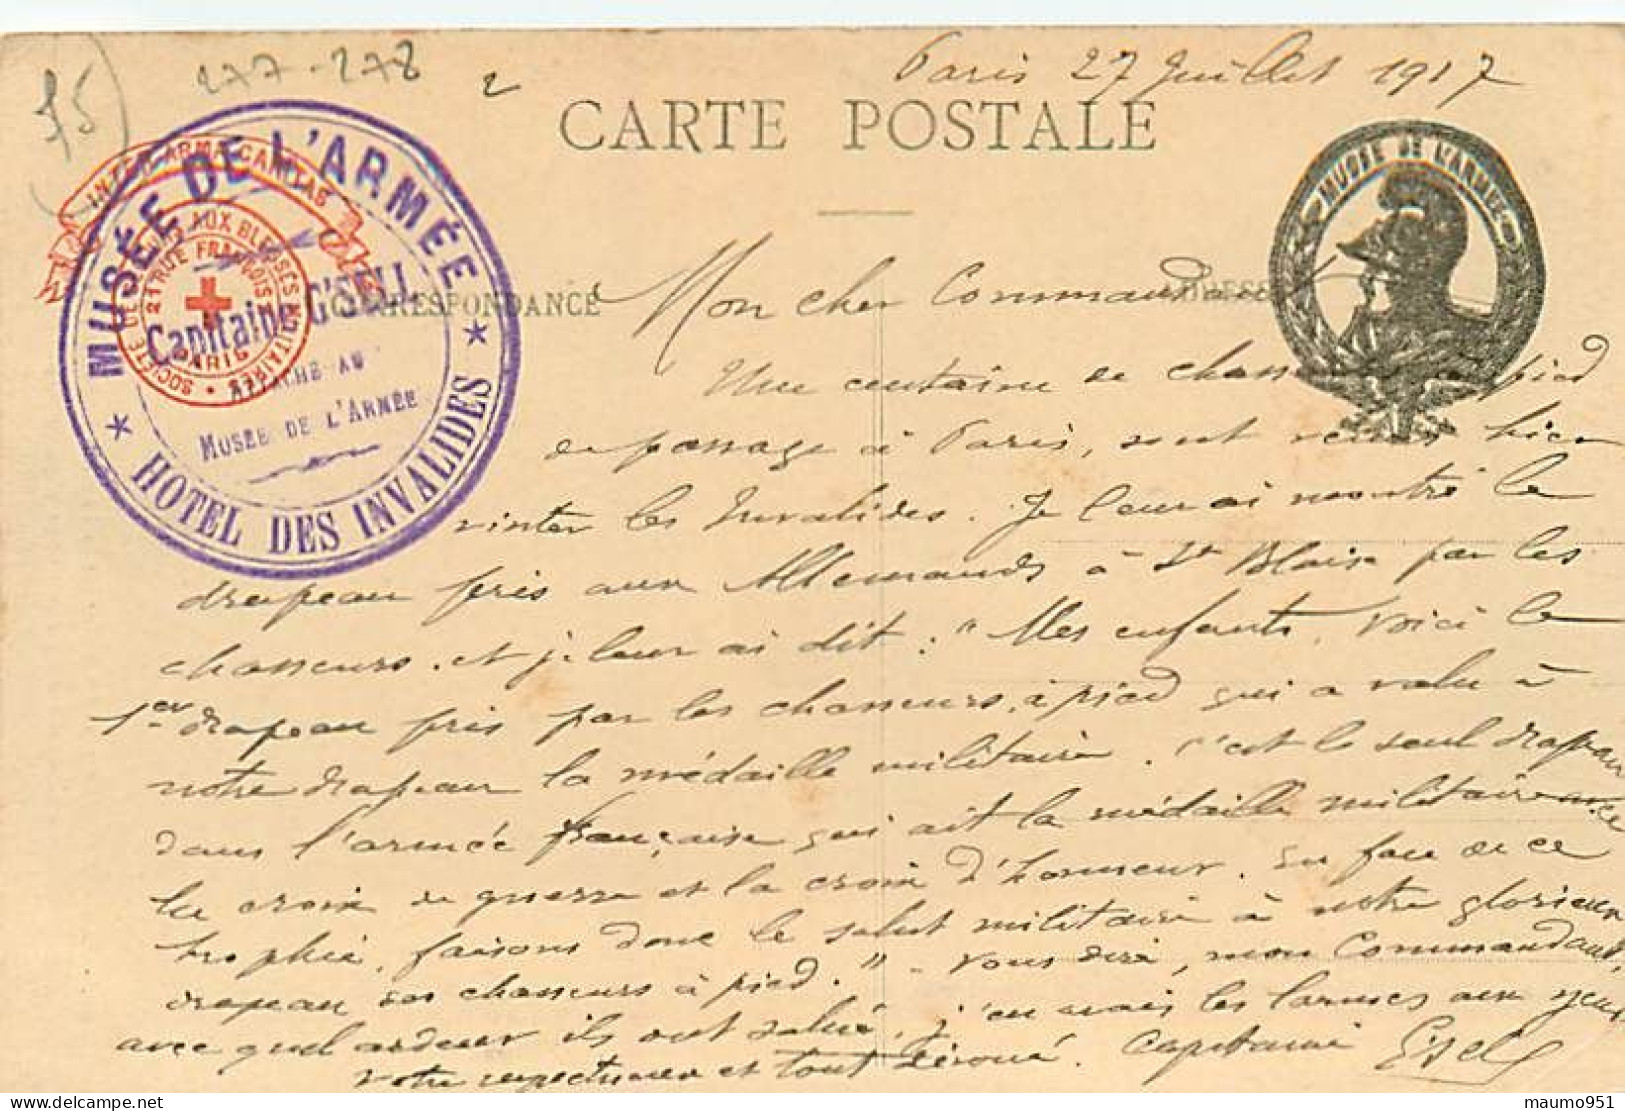 75
277-278
2
Paris 27 Juillet 1917
CARTE POSTALE
MUSÉE DE L'ARMÉE
HOTEL DES INVALIDES
Capitaine G'SELL
ATTACHÉ AU
MUSÉE DE L'ARMÉE
INTER ARMA CARITAS
SOCIÉTÉ DE SECOURS AUX BLESSÉS MILITAIRES
21 RUE FRANÇOIS 1er
PARIS
MUSÉE DE L'ARMÉE
CORRESPONDANCE
ADRESSE
Mon cher Commandant
Une centaine de chasseurs à pied
de passage à Paris, sont venus hier
visiter les Invalides. Je leur ai montré le
drapeau pris aux Allemands à St Blaise par les
chasseurs. et je leur ai dit : "Mes enfants, voici le
1er drapeau pris par les chasseurs à pied qui a valu à
notre drapeau la médaille militaire. C'est le seul drapeau
dans l'armée française qui ait la médaille militaire avec
la croix de guerre et la croix d'honneur. En face de ce
trophée, faisons donc le salut militaire à notre glorieux
drapeau des chasseurs à pied." Vous dire, mon Commandant,
avec quel ardeur ils ont salué, j'en avais les larmes aux yeux
Votre respectueux et tout dévoué. Capitaine Gsell
maumo951